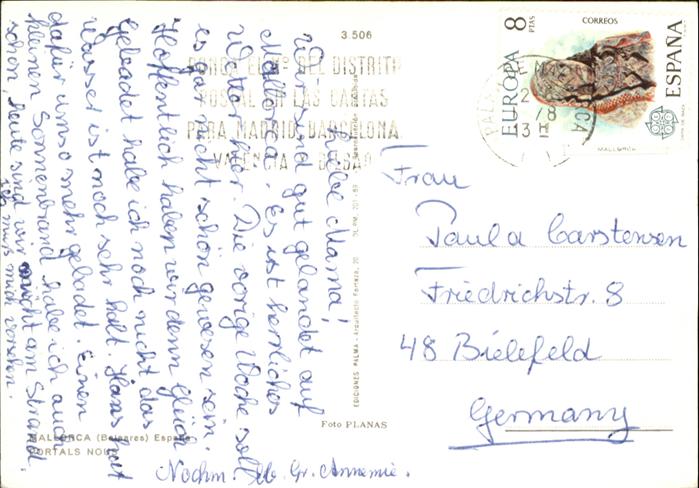 3.506
PONGA EL Nº DEL DISTRITO
POSTAL EN LAS CARTAS
PARA MADRID, BARCELONA
VALENCIA BILBAO
8 PTAS
CORREOS
EUROPA
ESPAÑA
MALLORCA
Liebe Mama!
Wir sind gut gelandet auf
Mallorca. Es ist herrliches
Wetter hier. Die vorige Woche soll
es gar nicht schön gewesen sein.
Hoffentlich haben wir denn Glück
Gebadet habe ich noch nicht das
Wasser ist noch sehr kalt. Hans hat
dafür umso mehr gebadet. Einen
kleinen Sonnenbrand habe ich auch
schon, heute sind wir nicht am Strand
ich muss mich vorsehen.
Nochm. lb. Gr. Annemie.
Frau
Paula Carstensen
Friedrichstr. 8
48 Bielefeld
Germany
EDICIONES PALMA - Arquitecto Forteza, 20
Foto PLANAS
MALLORCA (Baleares) España
PORTALS NOUS